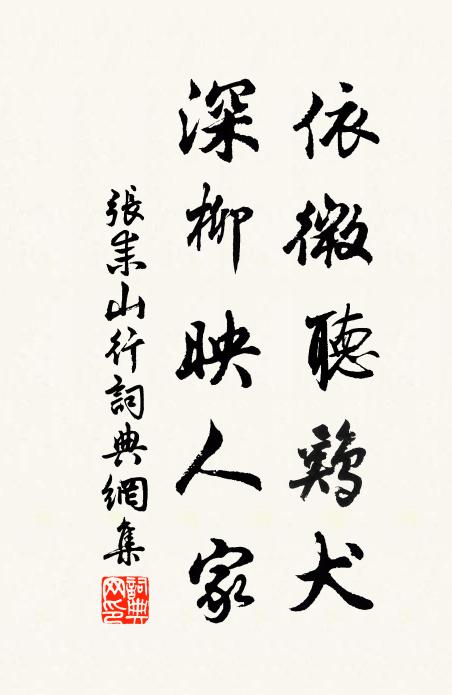 依微聽鷄犬
深柳映人家
張耒山行詞典網集
詞典
网印